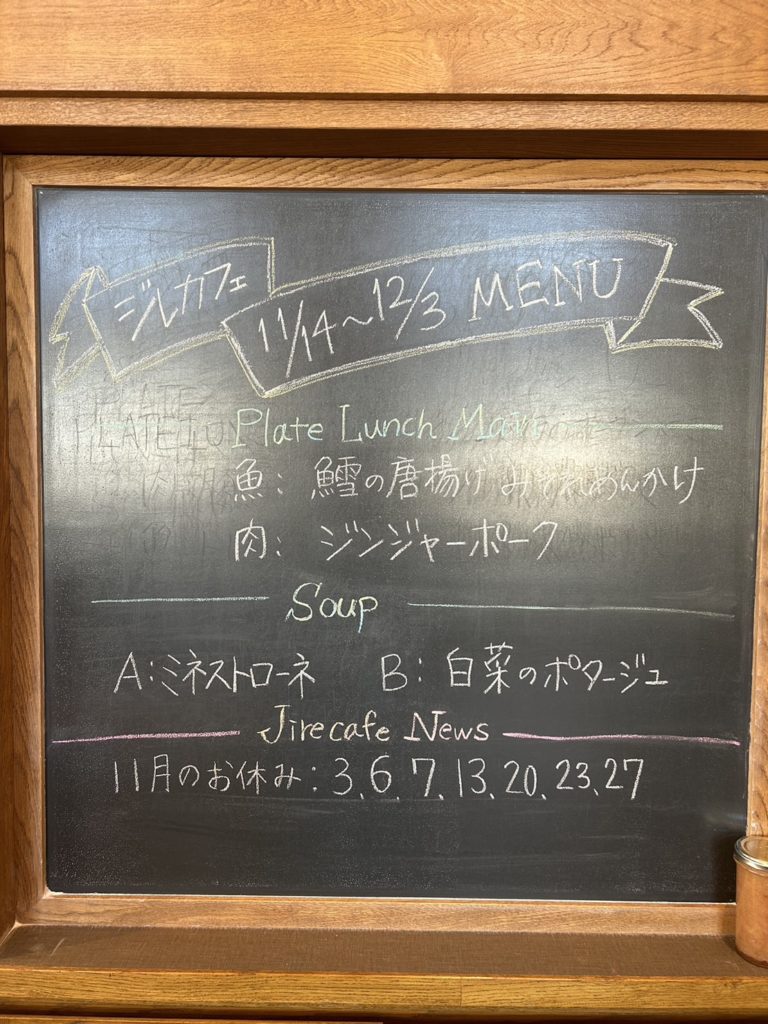 ジルカフェ 11/14～12/3 MENU
Plate Lunch Main
魚: 鱈の唐揚げ みぞれあんかけ
肉: ジンジャーポーク
Soup
A:ミネストローネ B: 白菜のポタージュ
Jirecafe News
11月のお休み: 3、6、7、13、20、23、27